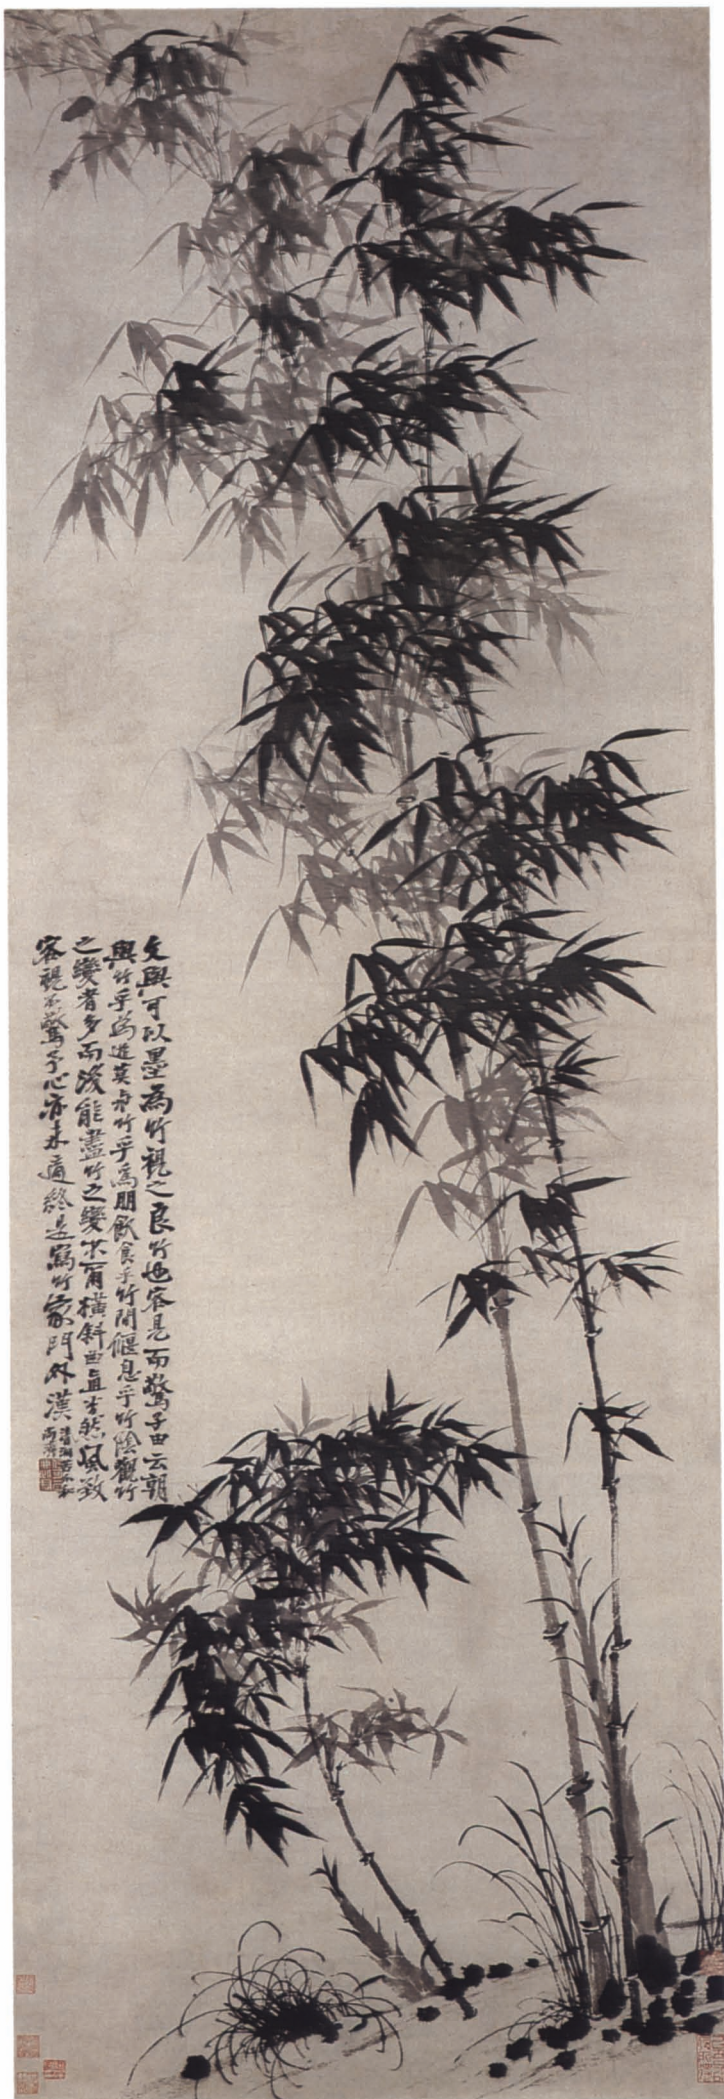 文與可以墨為竹視之良竹也客見而驚子由云朝
與竹乎為遊莫與竹乎為朋飲食乎竹間偃息乎竹陰觀竹
之變者多而後能盡竹之變若夫橫斜曲直天然風致
客視不驚予心亦未適終是寫竹家門外漢
清湘苦瓜和
尚濟